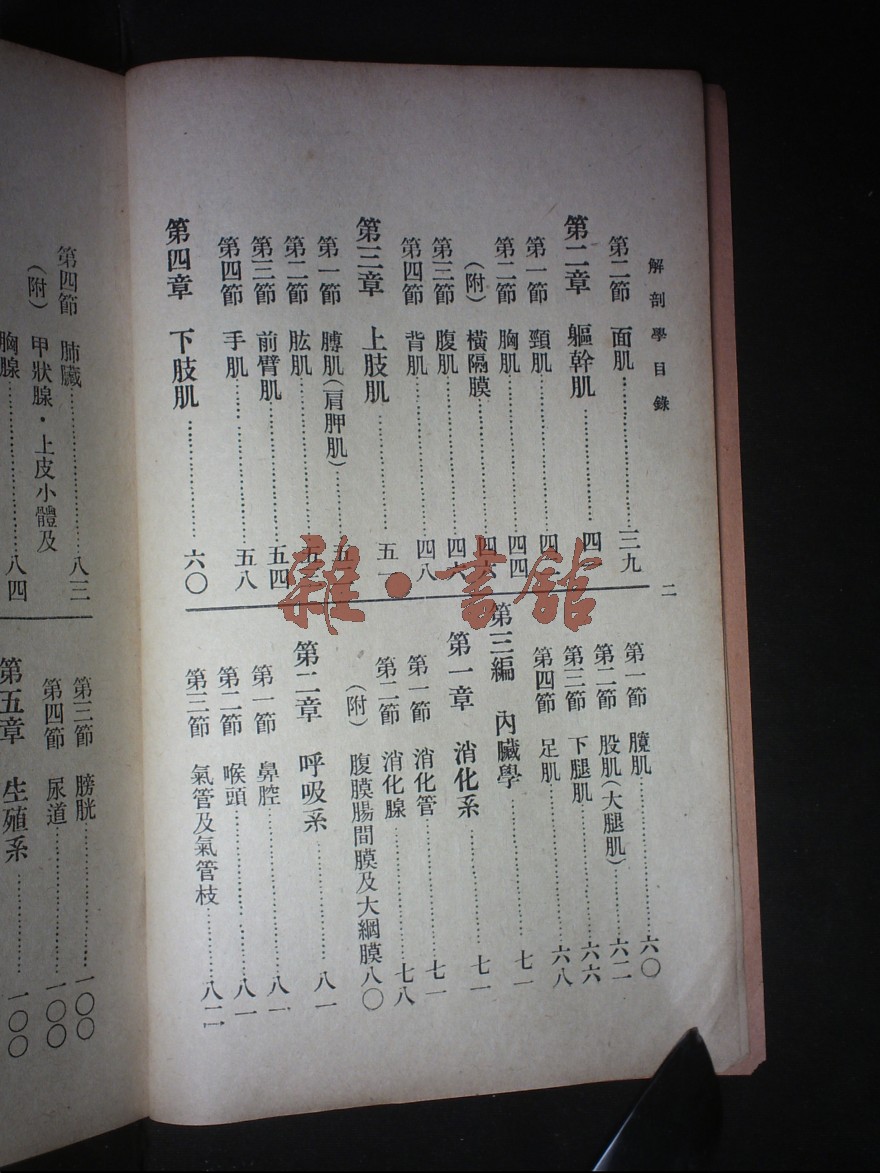 解剖學目錄
二
第二節 面肌 三九
第二章 軀幹肌 四
第一節 頸肌 四
第二節 胸肌 四四
（附） 橫隔膜 四六
第三節 腹肌 四六
第四節 背肌 四八
第三章 上肢肌 五一
第一節 膊肌（肩胛肌） 五
第二節 肱肌 五
第三節 前臂肌 五四
第四節 手肌 五八
第四章 下肢肌 六〇
第一節 臗肌 六〇
第二節 股肌（大腿肌） 六二
第三節 下腿肌 六六
第四節 足肌 六八
第三編 內臟學 七一
第一章 消化系 七一
第一節 消化管 七一
第二節 消化腺 七八
（附） 腹膜腸間膜及大網膜 八〇
第二章 呼吸系 八一
第一節 鼻腔 八一
第二節 喉頭 八一
第三節 氣管及氣管枝 八二
第四節 肺臟 八三
（附） 甲狀腺・上皮小體及
胸腺 八四
第三節 膀胱 一〇〇
第四節 尿道 一〇〇
第五章 生殖系 一〇〇
雜・書館